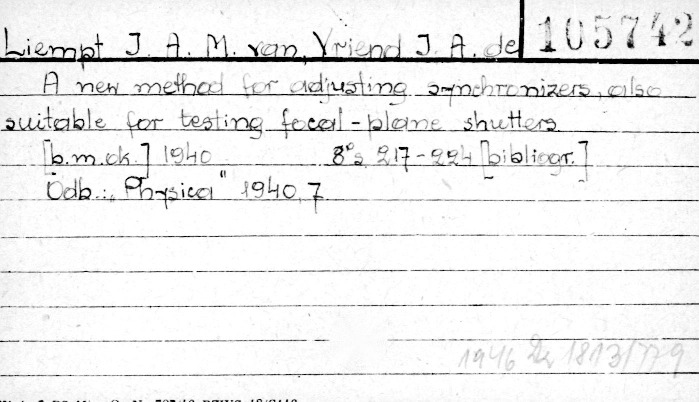 Liempt J. A. M. van, Vriend J. A. de 105742
A new method for adjusting synchronizers, also
suitable for testing focal-plane shutters.
[b.m.dk.] 1940 8°s. 217-224 [bibliogr.]
Odb.: „Physica" 1940, 7
1946 1813/779